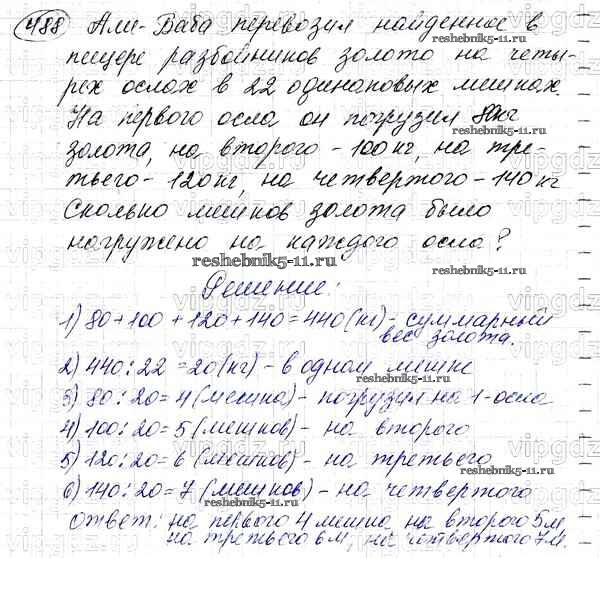 488 Али-Баба перевозил найденное в
пещере разбойников золото на четы-
рех ослах в 22 одинаковых мешках.
На первого осла он погрузил 80кг
золота, на второго - 100кг, на тре-
тьего - 120кг, на четвертого - 140кг
Сколько мешков золота было
нагружено на каждого осла?
Решение:
1) 80+100+120+140=440(кг) - суммарный
вес золота.
2) 440:22=20(кг) - в одном мешке
3) 80:20=4(мешка) - погрузил на 1-осла
4) 100:20=5(мешков) - на второго
5) 120:20=6(мешков) - на третьего
6) 140:20=7(мешков) - на четвертого
Ответ: на первого 4 мешка, на второго 5м,
на третьего 6м, на четвертого 7м.
reshebnik5-11.ru
reshebnik5-11.ru
reshebnik5-11.ru
reshebnik5-11.ru
reshebnik5-11.ru